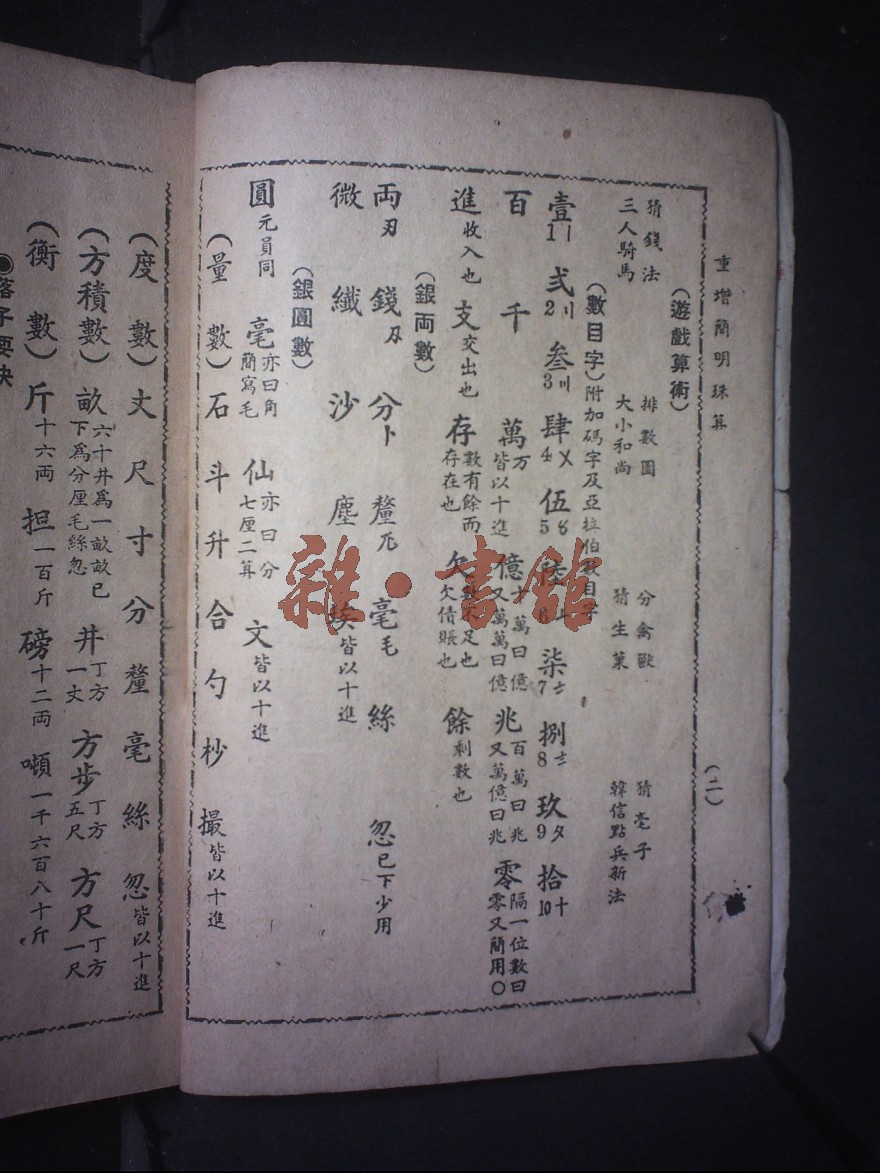 重增簡明珠算
(二)
(遊戲算術)
猜錢法 排數圖 分禽獸 猜亳子
三人騎馬 大小和尚 猜生菓 韓信點兵新法
(數目字)附加碼字及亞拉伯數目字
壹 弍 叁 肆 伍 陸 柒 捌 玖 拾
〡 〢 〣 〤 〥 〦 〧 〨 〩 十
1 2 3 4 5 6 7 8 9 10
百 千 萬万皆以十進 億十萬曰億又萬萬曰億 兆百萬曰兆又萬億曰兆 零隔一位數曰零又簡用〇
進收入也 支交出也 存數有餘而存在也 欠不足也欠債賬也 餘剩數也
(銀両數)
両刃 錢刄 分卜 釐兀 毫毛 絲 忽已下少用
微 纖 沙 塵 埃皆以十進
(銀圓數)
圓元員同 毫亦曰角簡寫毛 仙亦曰分七厘二算 文皆以十進
(量數)石 斗 升 合 勺 杪 撮皆以十進
(度數)丈 尺 寸 分 釐 毫 絲 忽皆以十進
(方積數)畝六十井爲一畝畝已下爲分厘毛絲忽 井丁方一丈 方步丁方五尺 方尺丁方一尺
(衡數)斤十六両 担一百斤 磅十二両 噸一千六百八十斤
◉落子要訣
雜·書館